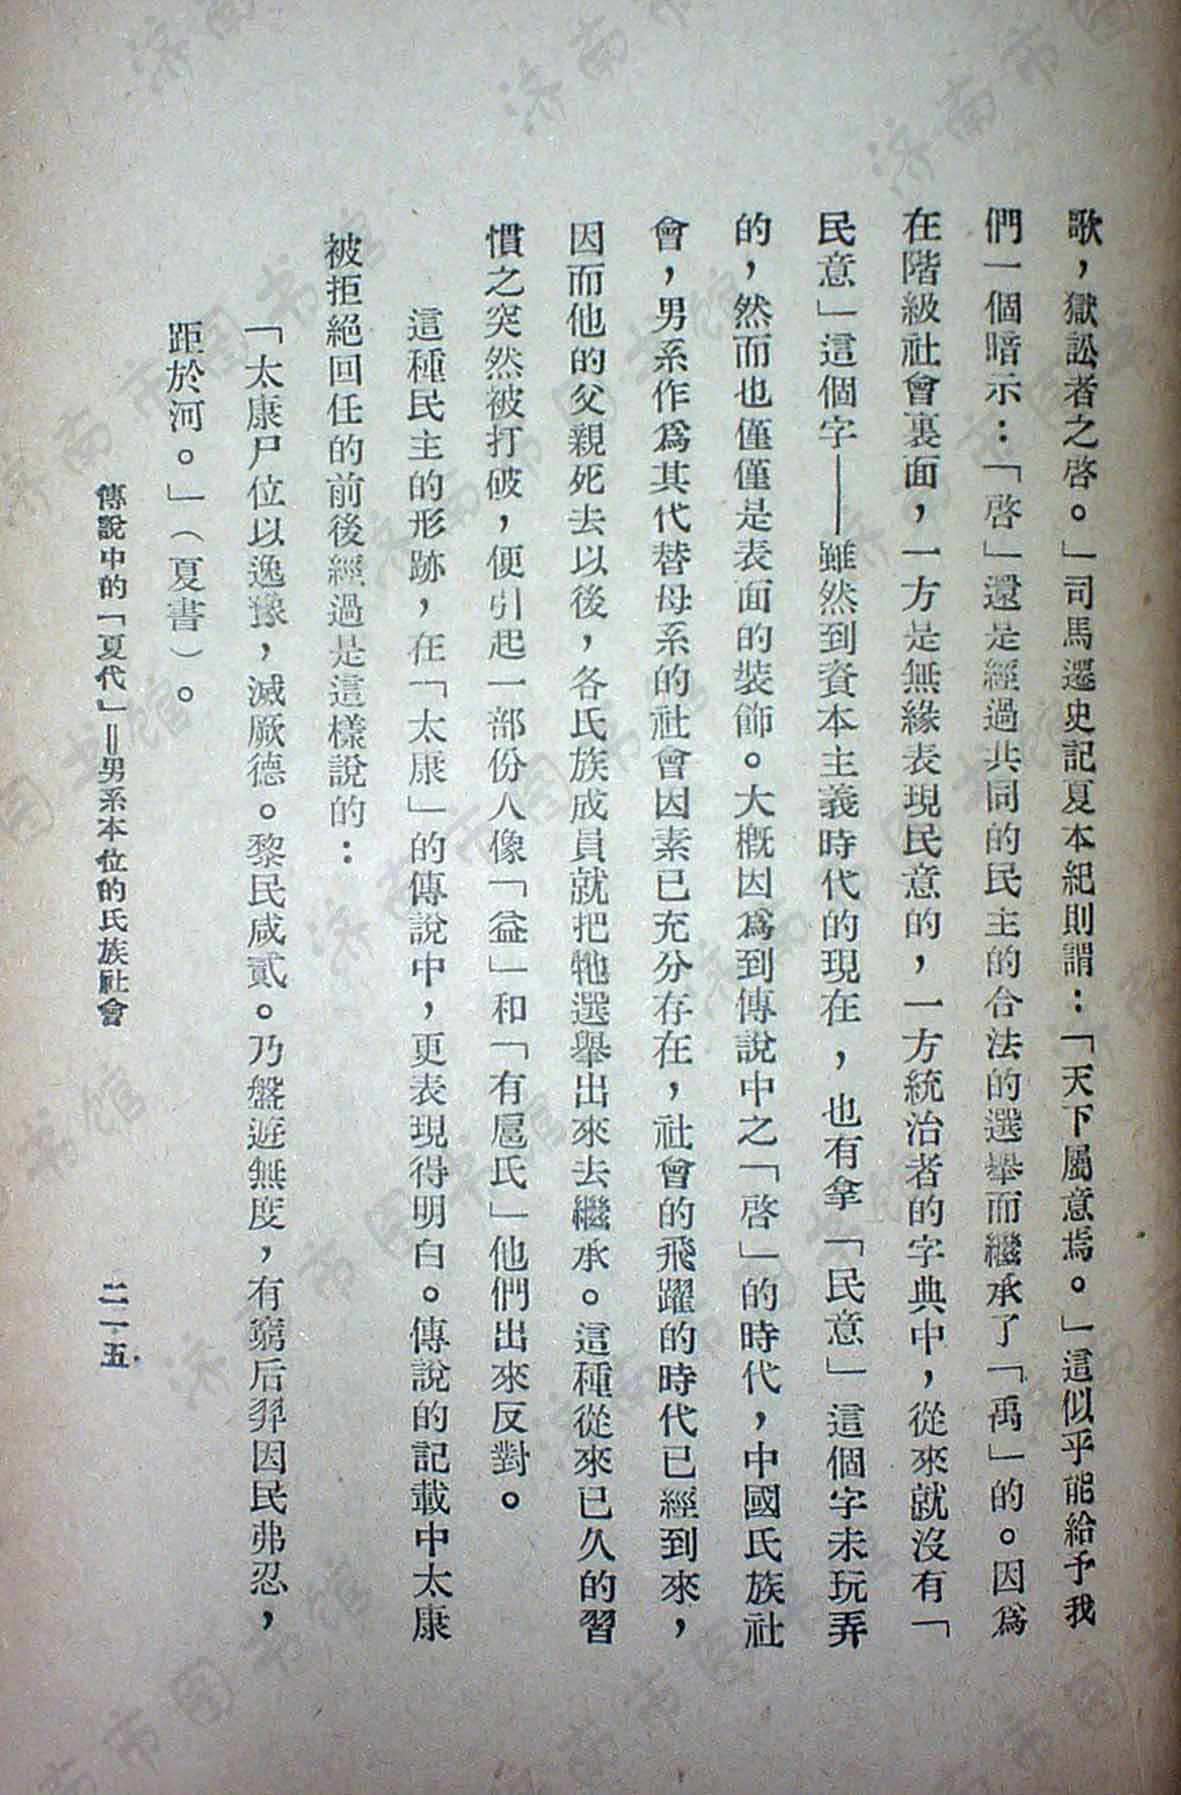 歌，獄訟者之啓。」司馬遷史記夏本紀則謂：「天下屬意焉。」這似乎能給予我
們一個暗示：「啓」還是經過共同的民主的合法的選舉而繼承了「禹」的。因爲
在階級社會裏面，一方是無緣表現民意的，一方統治者的字典中，從來就沒有「
民意」這個字——雖然到資本主義時代的現在，也有拿「民意」這個字未玩弄
的，然而也僅僅是表面的裝飾。大概因爲到傳說中之「啓」的時代，中國氏族社
會，男系作爲其代替母系的社會因素已充分存在，社會的飛躍的時代已經到來，
因而他的父親死去以後，各氏族成員就把牠選舉出來去繼承。這種從來已久的習
慣之突然被打破，便引起一部份人像「益」和「有扈氏」他們出來反對。
這種民主的形跡，在「太康」的傳說中，更表現得明白。傳說的記載中太康
被拒絕回任的前後經過是這樣說的：
「太康尸位以逸豫，滅厥德。黎民咸貳。乃盤遊無度，有窮后羿因民弗忍，
距於河。」（夏書）。
傳說中的「夏代」＝男系本位的氏族社會
二一五
济南市图书馆